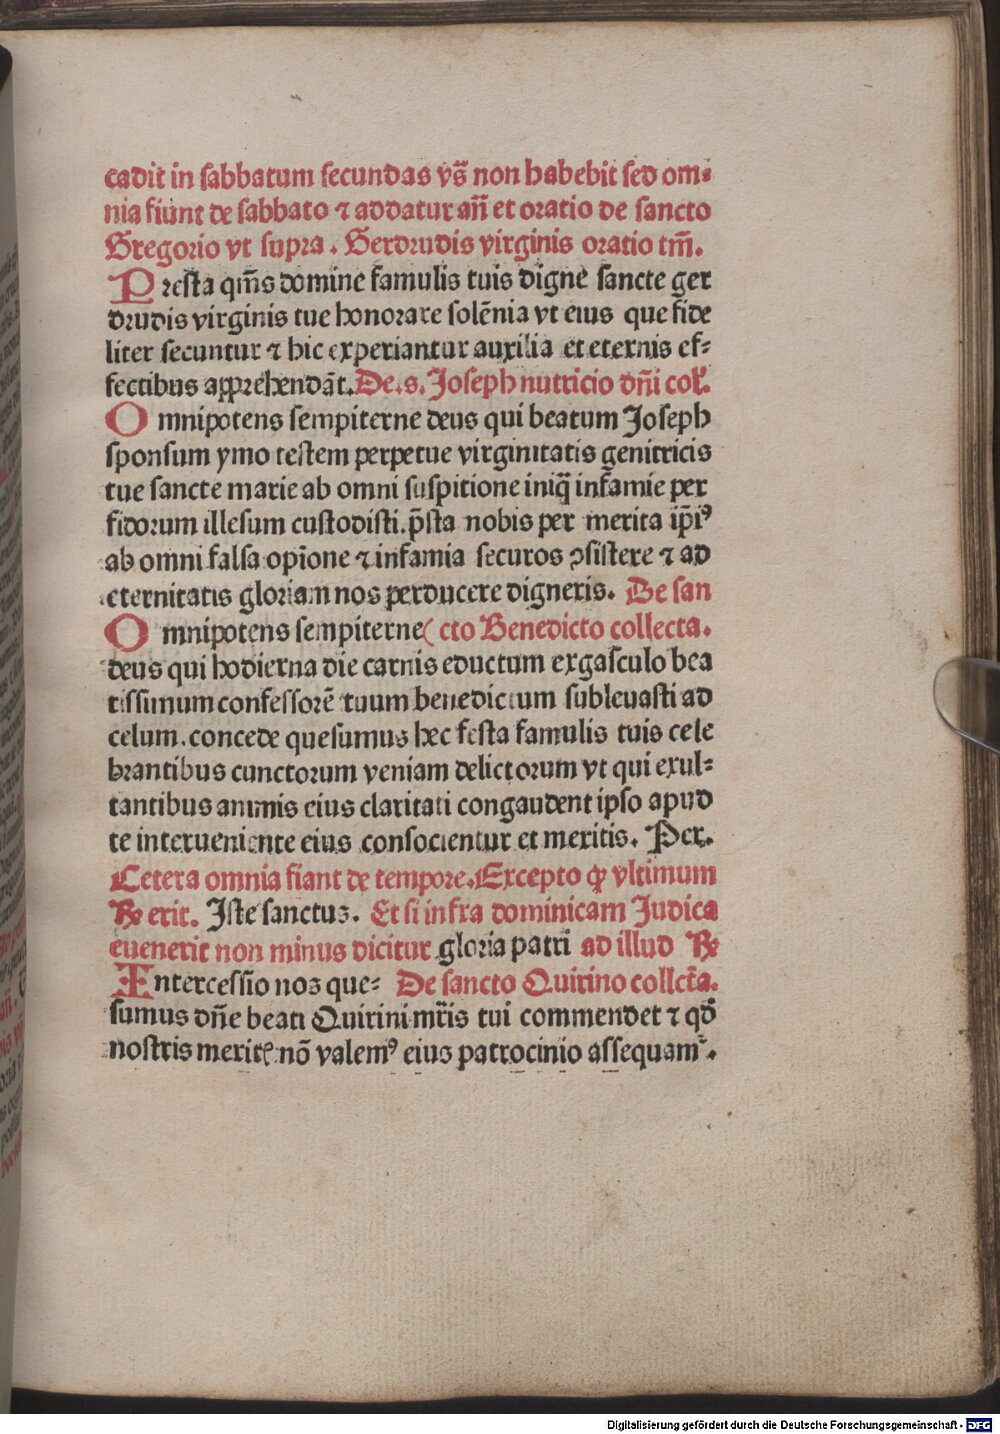 cadit in sabbatum secundas vs̃ non habebit sed om⸗
nia fiunt de sabbato ⁊ addatur añ et oratio de sancto
Gregorio vt supra. Gerdrudis virginis oratio tm̃.
Presta qm̃s domine famulis tuis digne sancte ger
drudis virginis tue honorare solẽnia vt eius que fide
liter secuntur ⁊ hic experiantur auxilia et eternis ef⸗
fectibus apprehendãt. De .s. Joseph nutricio dñi col̕.
Omnipotens sempiterne deus qui beatum Joseph
sponsum ymo testem perpetue virginitatis genitricis
tue sancte marie ab omni suspitione iniq̃ infamie per
fidorum illesum custodisti. p̃sta nobis per merita ip̃iꝰ
ab omni falsa opĩone ⁊ infamia securos ꝯsistere ⁊ ad
eternitatis gloriam nos perducere digneris. De san
Omnipotens sempiterne (cto Benedicto collecta.
deus qui hodierna die carnis eductum ergasculo bea
tissimum confessorẽ tuum benedictum subleuasti ad
celum. concede quesumus hec festa famulis tuis cele
brantibus cunctorum veniam delictorum vt qui exul⸗
tantibus animis eius claritati congaudent ipso apud
te interueniente eius consocientur et meritis. Per.
Cetera omnia fiant de tempore. Excepto ꝙ vltimum
℞ erit. Iste sanctus. Et si infra dominicam Judica
euenerit non minus dicitur gloria patri ad illud ℞
Intercessio nos que⸗ De sancto Quirino collcta.
sumus dñe beati Quirini mr̃is tui commendet ⁊ qđ
nostris meritꝭ nõ valemꝰ eius patrocinio assequamˀ.
Digitalisierung gefördert durch die Deutsche Forschungsgemeinschaft - DFG